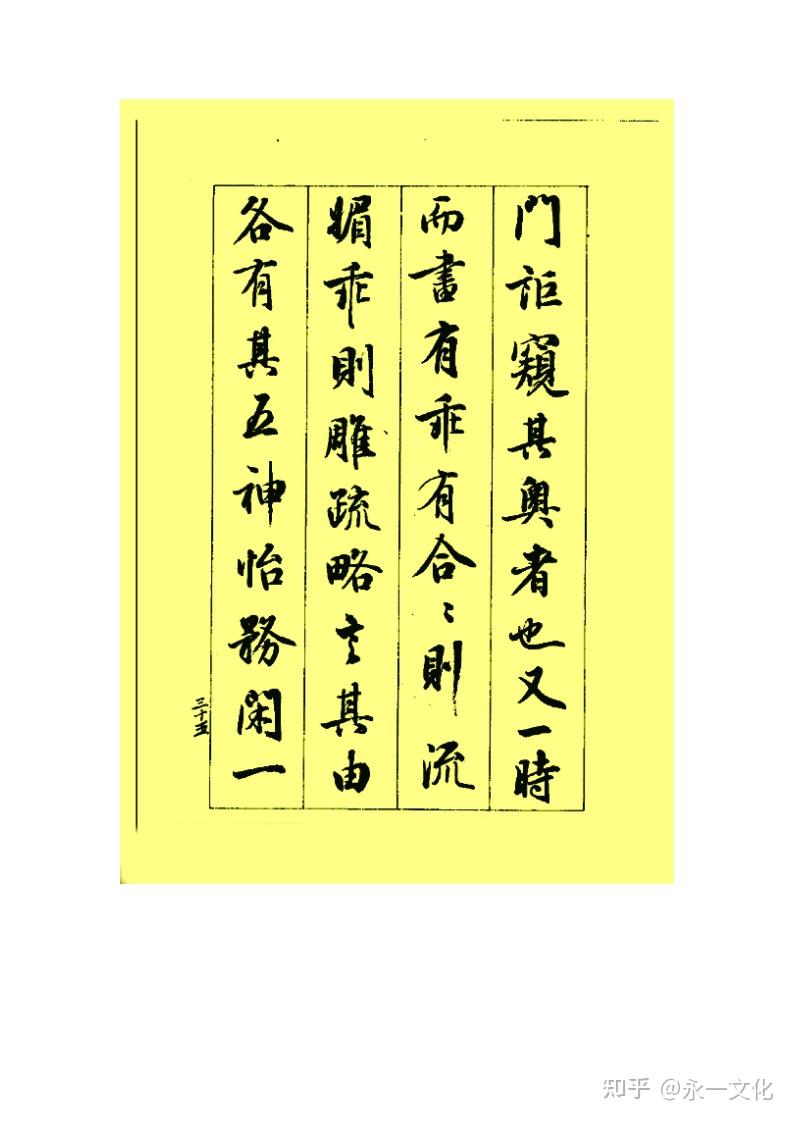 門詎窺其奧者也又一時
而書有乖有合〻則流
媚乖則雕疏略言其由
各有其五神怡務閑一
三十五
知乎 @永一文化